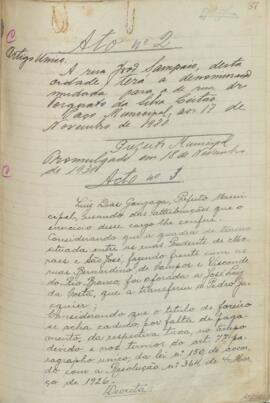 51
Acto nº 2
Artigo Unico.
A rua José Sampaio, desta
cidade terá a denominação
mudada para a de rua dr.
Torquato da Silva Leitão.
Paço Municipal, aos 17 de
Novembro de 1930
Prefeito Municipal
Promulgado em 18 de Novembro
de 1930.
Acto nº 3
Luiz Dias Gonzaga, Prefeito Muni-
cipal, usando das attribuições que o
exercicio desse cargo lhe confere.
Considerando que a quadra de terreno
situada entre as ruas Prudente de Mo-
raes e São José, fazendo frente com as
ruas Bernardino de Campos e Visconde
do Rio Branco, foi aforada a José Luiz
da Costa, que a transferiu a Pedro
Considerando que o titulo de foreiro
se acha caduco, por falta de paga-
mento, da respectiva taxa, no tempo
devido e nos termos do art. 77 pa-
ragrapho unico, da lei nº 180, de
de com a Resolução nº 364, de Mar-
ço de 1926.
Decreta: